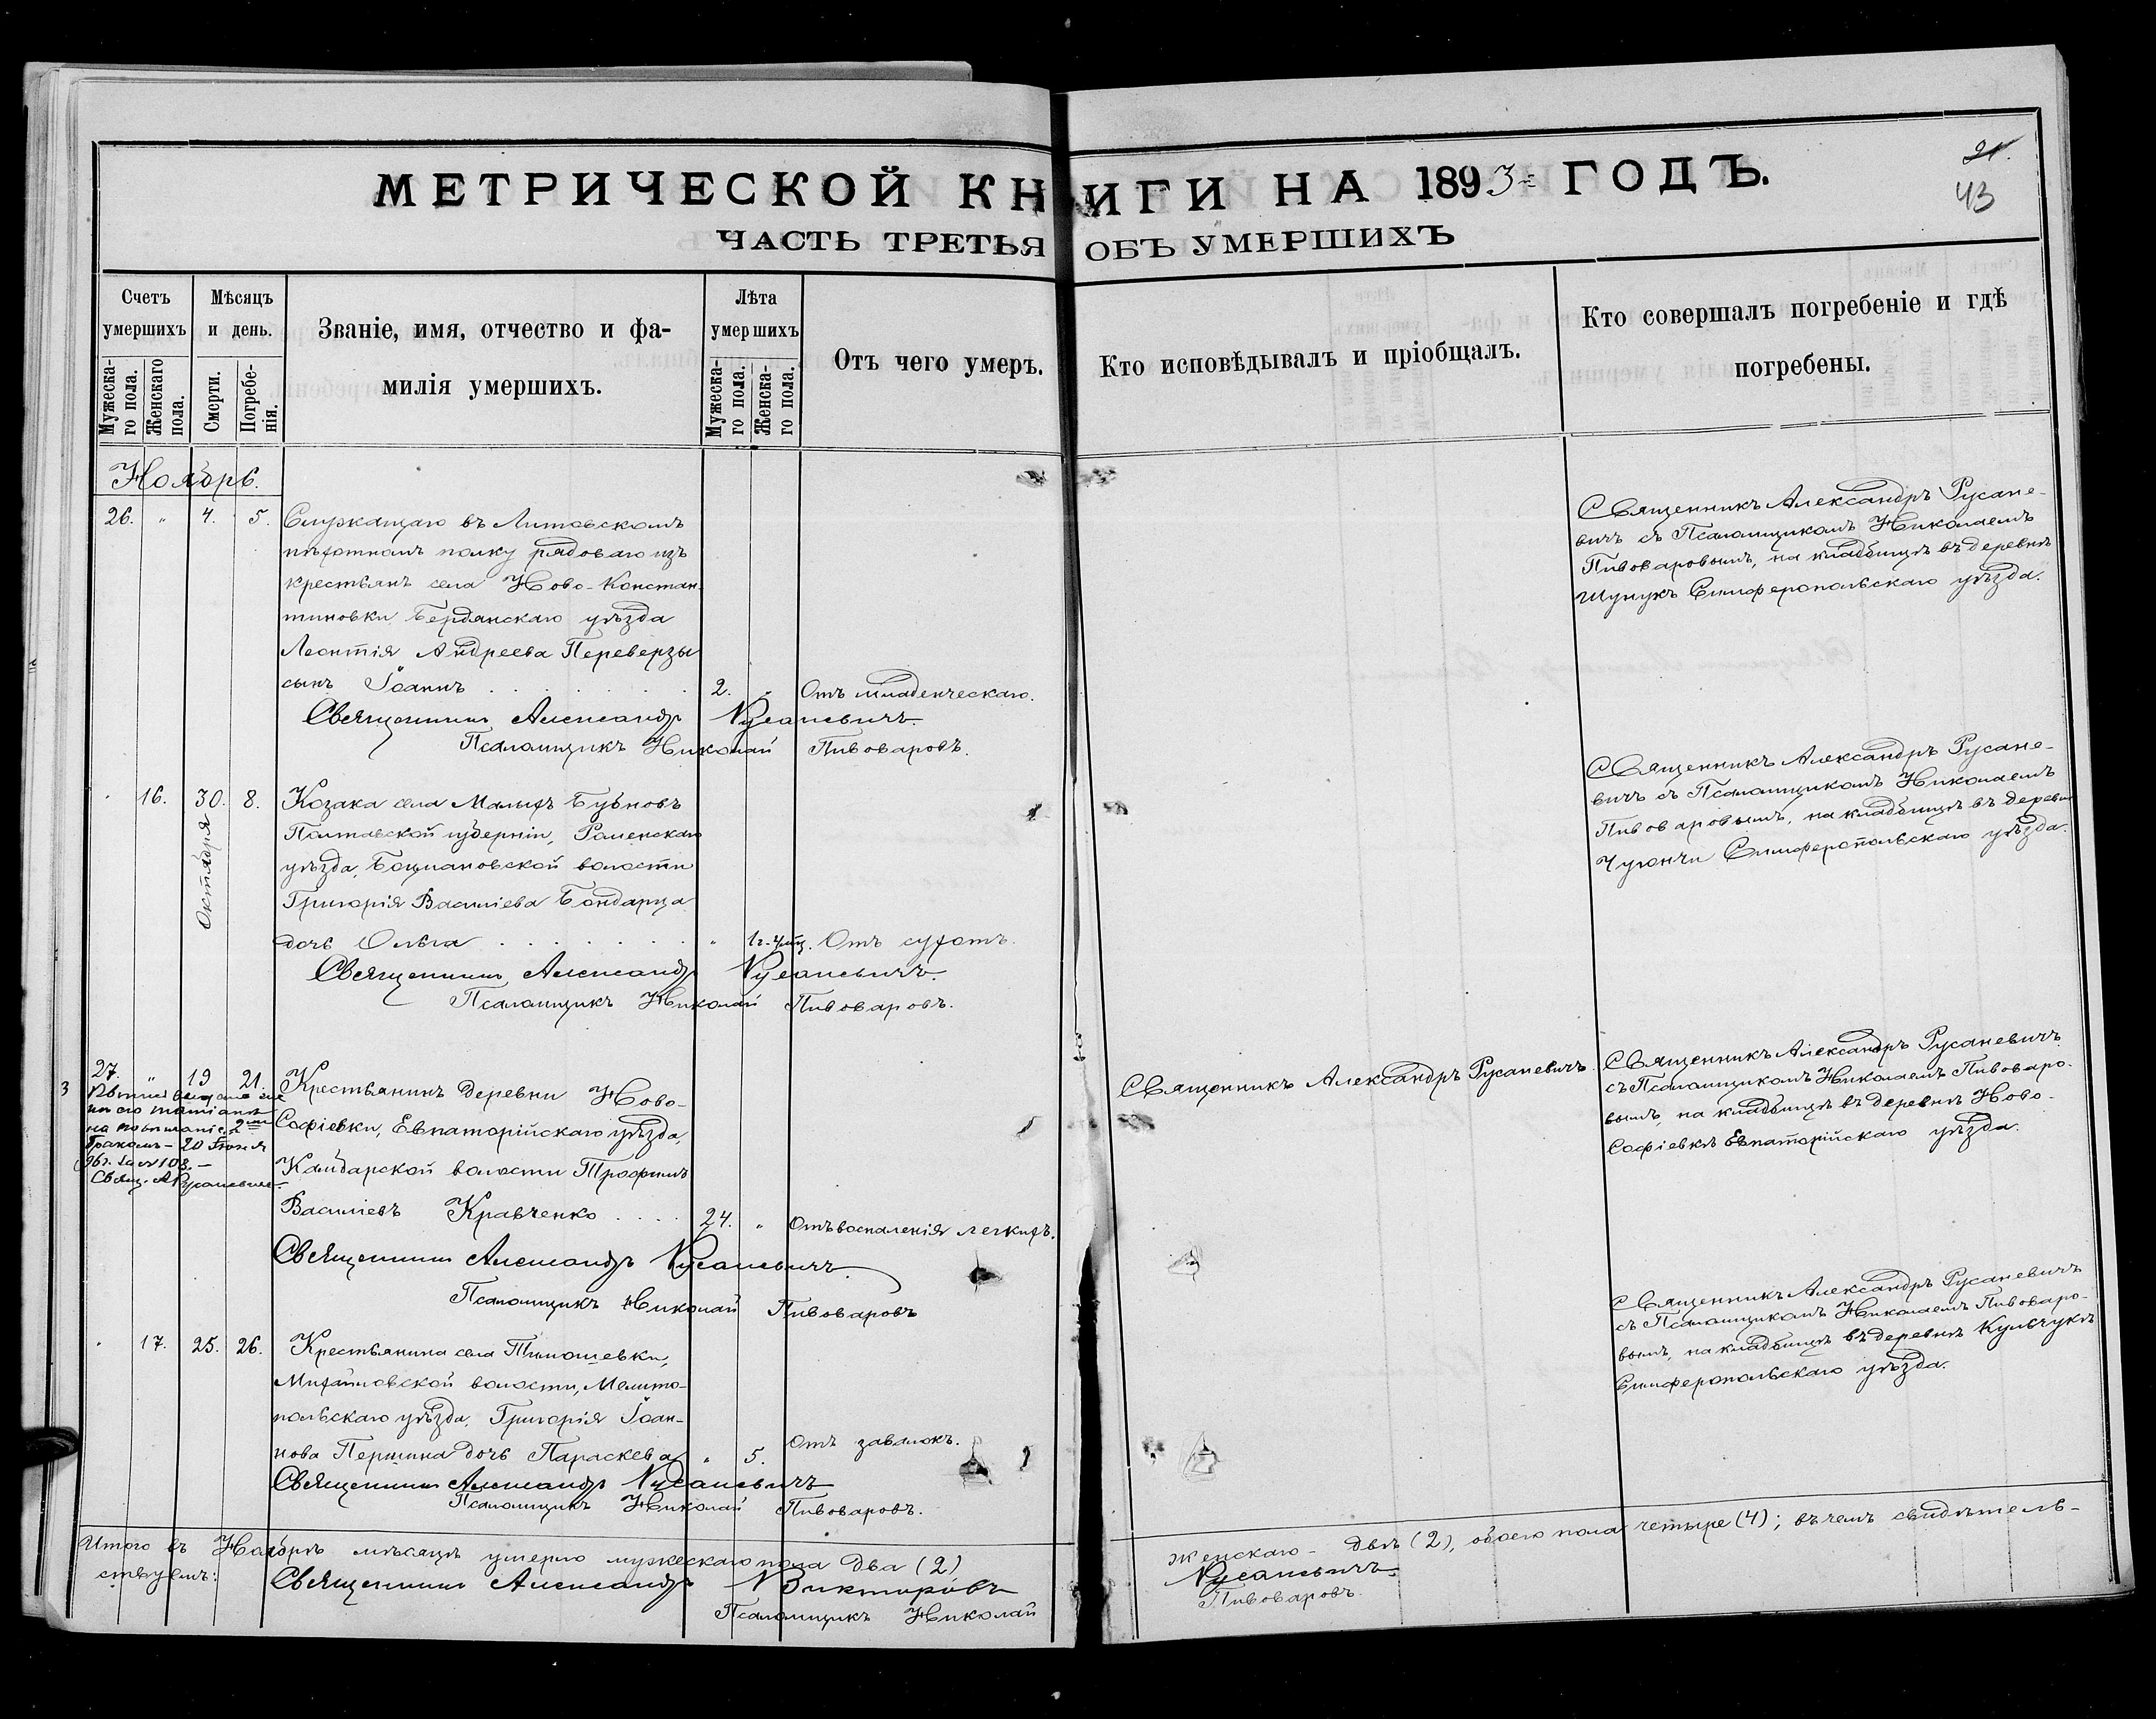 МЕТРИЧЕСКОЙ КНИГИ НА 1893 ГОДЪ.
21.
43
ЧАСТЬ ТРЕТЬЯ ОБЪ УМЕРШИХЪ
Счетъ умершихъ
Мужеска-го пола.
Женскаго пола.
Мѣсяцъ и день.
Смерти.
Погребе-нія.
Званіе, имя, отчество и фа-
милія умершихъ.
Лѣта умершихъ
Мужеска-го пола.
Женска-го пола.
Отъ чего умеръ.
Кто исповѣдывалъ и пріобщалъ.
Кто совершалъ погребеніе и гдѣ
погребены.
Ноябрь.
26. " 4. 5. Служащаго въ Литовскомъ
пѣхотномъ полку рядоваго изъ
крестьянъ села Ново-Констан-
тиновки Бердянскаго уѣзда
Леонтія Андреева Переверзы
сынъ Іоаннъ 2. " Отъ младенческаго.
Священникъ Александръ Русаневичъ.
Псаломщикъ Николай Пивоваровъ.
Священникъ Александръ Русане-
вичъ съ Псаломщикомъ Николаемъ
Пивоваровымъ, на кладбищѣ въ деревнѣ
Шунукъ Симферопольскаго уѣзда.
" 16. 30. Октября 8. Козака села Малыхъ Бубновъ
Полтавской губерніи, Роменскаго
уѣзда, Боцмановской волости
Григорія Василіева Бондарца
дочь Ольга " 1г. 4мц. Отъ сухотъ.
Священникъ Александръ Русаневичъ.
Псаломщикъ Николай Пивоваровъ.
Священникъ Александръ Русане-
вичъ съ Псаломщикомъ Николаемъ
Пивоваровымъ, на кладбищѣ въ деревнѣ
Чугончи Симферопольскаго уѣзда.
3
27. " 19 21. Крестьянинъ деревни Ново-
Софіевки, Евпаторійскаго уѣзда,
Камбарской волости Трофимъ
Василіевъ Кравченко 24. " Отъ воспаленія легкихъ.
Священникъ Александръ Русаневичъ.
Псаломщикъ Николай Пивоваровъ
бракомъ - 20
Свящ. А Русаневичъ
Священникъ Александръ Русаневичъ.
Священникъ Александръ Русаневичъ
съ Псаломщикомъ Николаемъ Пивоваро-
вымъ, на кладбищѣ въ деревнѣ Ново-
Софіевкѣ Евпаторійскаго уѣзда.
" 17. 25. 26. Крестьянина села Тимошевки,
Михайловской волости, Мелито-
польскаго уѣзда, Григорія Іоан-
нова Першина дочь Параскева " 5. Отъ завалокъ.
Священникъ Александръ Русаневичъ
Псаломщикъ Николай Пивоваровъ.
Священникъ Александръ Русаневичъ
съ Псаломщикомъ Николаемъ Пивоваро-
вымъ, на кладбищѣ въ деревнѣ Кульчукъ
Симферопольскаго уѣзда.
Итого въ Ноябрѣ мѣсяцѣ умерло мужескаго пола два (2) женскаго - двѣ (2), обоего пола четыре (4); въ чемъ свидѣтель-
ствуемъ: Священникъ Александръ Викторовъ Русаневичъ.
Псаломщикъ Николай Пивоваровъ.